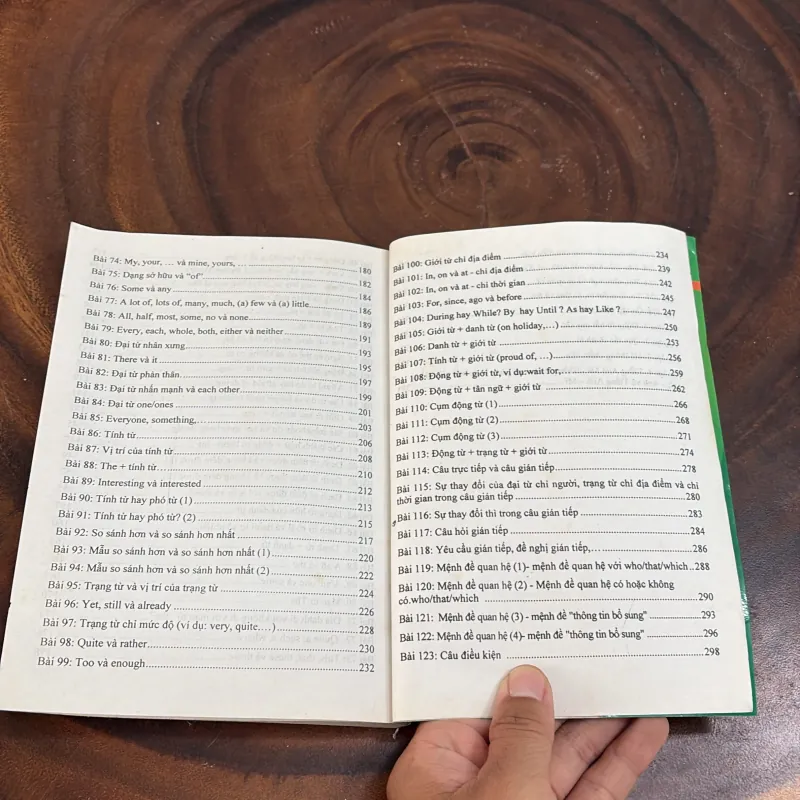 Bài 74: My, your, … và mine, yours, … 180
Bài 75: Dạng sở hữu và "of" 182
Bài 76: Some và any 184
Bài 77: A lot of, lots of, many, much, (a) few và (a) little 186
Bài 78: All, half, most, some, no và none 189
Bài 79: Every, each, whole, both, either và neither 191
Bài 80: Đại từ nhân xưng 193
Bài 81: There và it 195
Bài 82: Đại từ phản thân 197
Bài 83: Đại từ nhấn mạnh và each other 199
Bài 84: Đại từ one/ones 201
Bài 85: Everyone, something,… 203
Bài 86: Tính từ 206
Bài 87: Vị trí của tính từ 208
Bài 88: The + tính từ… 210
Bài 89: Interesting và interested 212
Bài 90: Tính từ hay phó từ (1) 213
Bài 91: Tính từ hay phó từ? (2) 215
Bài 92: So sánh hơn và so sánh hơn nhất 217
Bài 93: Mẫu so sánh hơn và so sánh hơn nhất (1) 220
Bài 94: Mẫu so sánh hơn và so sánh hơn nhất (2) 222
Bài 95: Trạng từ và vị trí của trạng từ 224
Bài 96: Yet, still và already 226
Bài 97: Trạng từ chỉ mức độ (ví dụ: very, quite….) 228
Bài 98: Quite và rather 230
Bài 99: Too và enough 232
Bài 100: Giới từ chỉ địa điểm 234
Bài 101: In, on và at - chỉ địa điểm 239
Bài 102: In, on và at - chỉ thời gian 242
Bài 103: For, since, ago và before 245
Bài 104: During hay While? By hay Until ? As hay Like ? 247
Bài 105: Giới từ + danh từ (on holiday,…) 250
Bài 106: Danh từ + giới từ 253
Bài 107: Tính từ + giới từ (proud of, …) 256
Bài 108: Động từ + giới từ, ví dụ:wait for,… 259
Bài 109: Động từ + tân ngữ + giới từ 262
Bài 110: Cụm động từ (1) 266
Bài 111: Cụm động từ (2) 268
Bài 112: Cụm động từ (3) 271
Bài 113: Động từ + trạng từ + giới từ 274
Bài 114: Câu trực tiếp và câu gián tiếp 278
Bài 115: Sự thay đổi của đại từ chỉ người, trạng từ chỉ địa điểm và chỉ
thời gian trong câu gián tiếp 280
Bài 116: Sự thay đổi thì trong câu gián tiếp 283
Bài 117: Câu hỏi gián tiếp 284
Bài 118: Yêu cầu gián tiếp, đề nghị gián tiếp,… 286
Bài 119: Mệnh đề quan hệ (1)- mệnh đề quan hệ với who/that/which 288
Bài 120: Mệnh đề quan hệ (2) - Mệnh đề quan hệ có hoặc không
có.who/that/which 290
Bài 121: Mệnh đề quan hệ (3) - mệnh đề "thông tin bổ sung" 293
Bài 122: Mệnh đề quan hệ (4)- mệnh đề "thông tin bổ sung" 296
Bài 123: Câu điều kiện 298